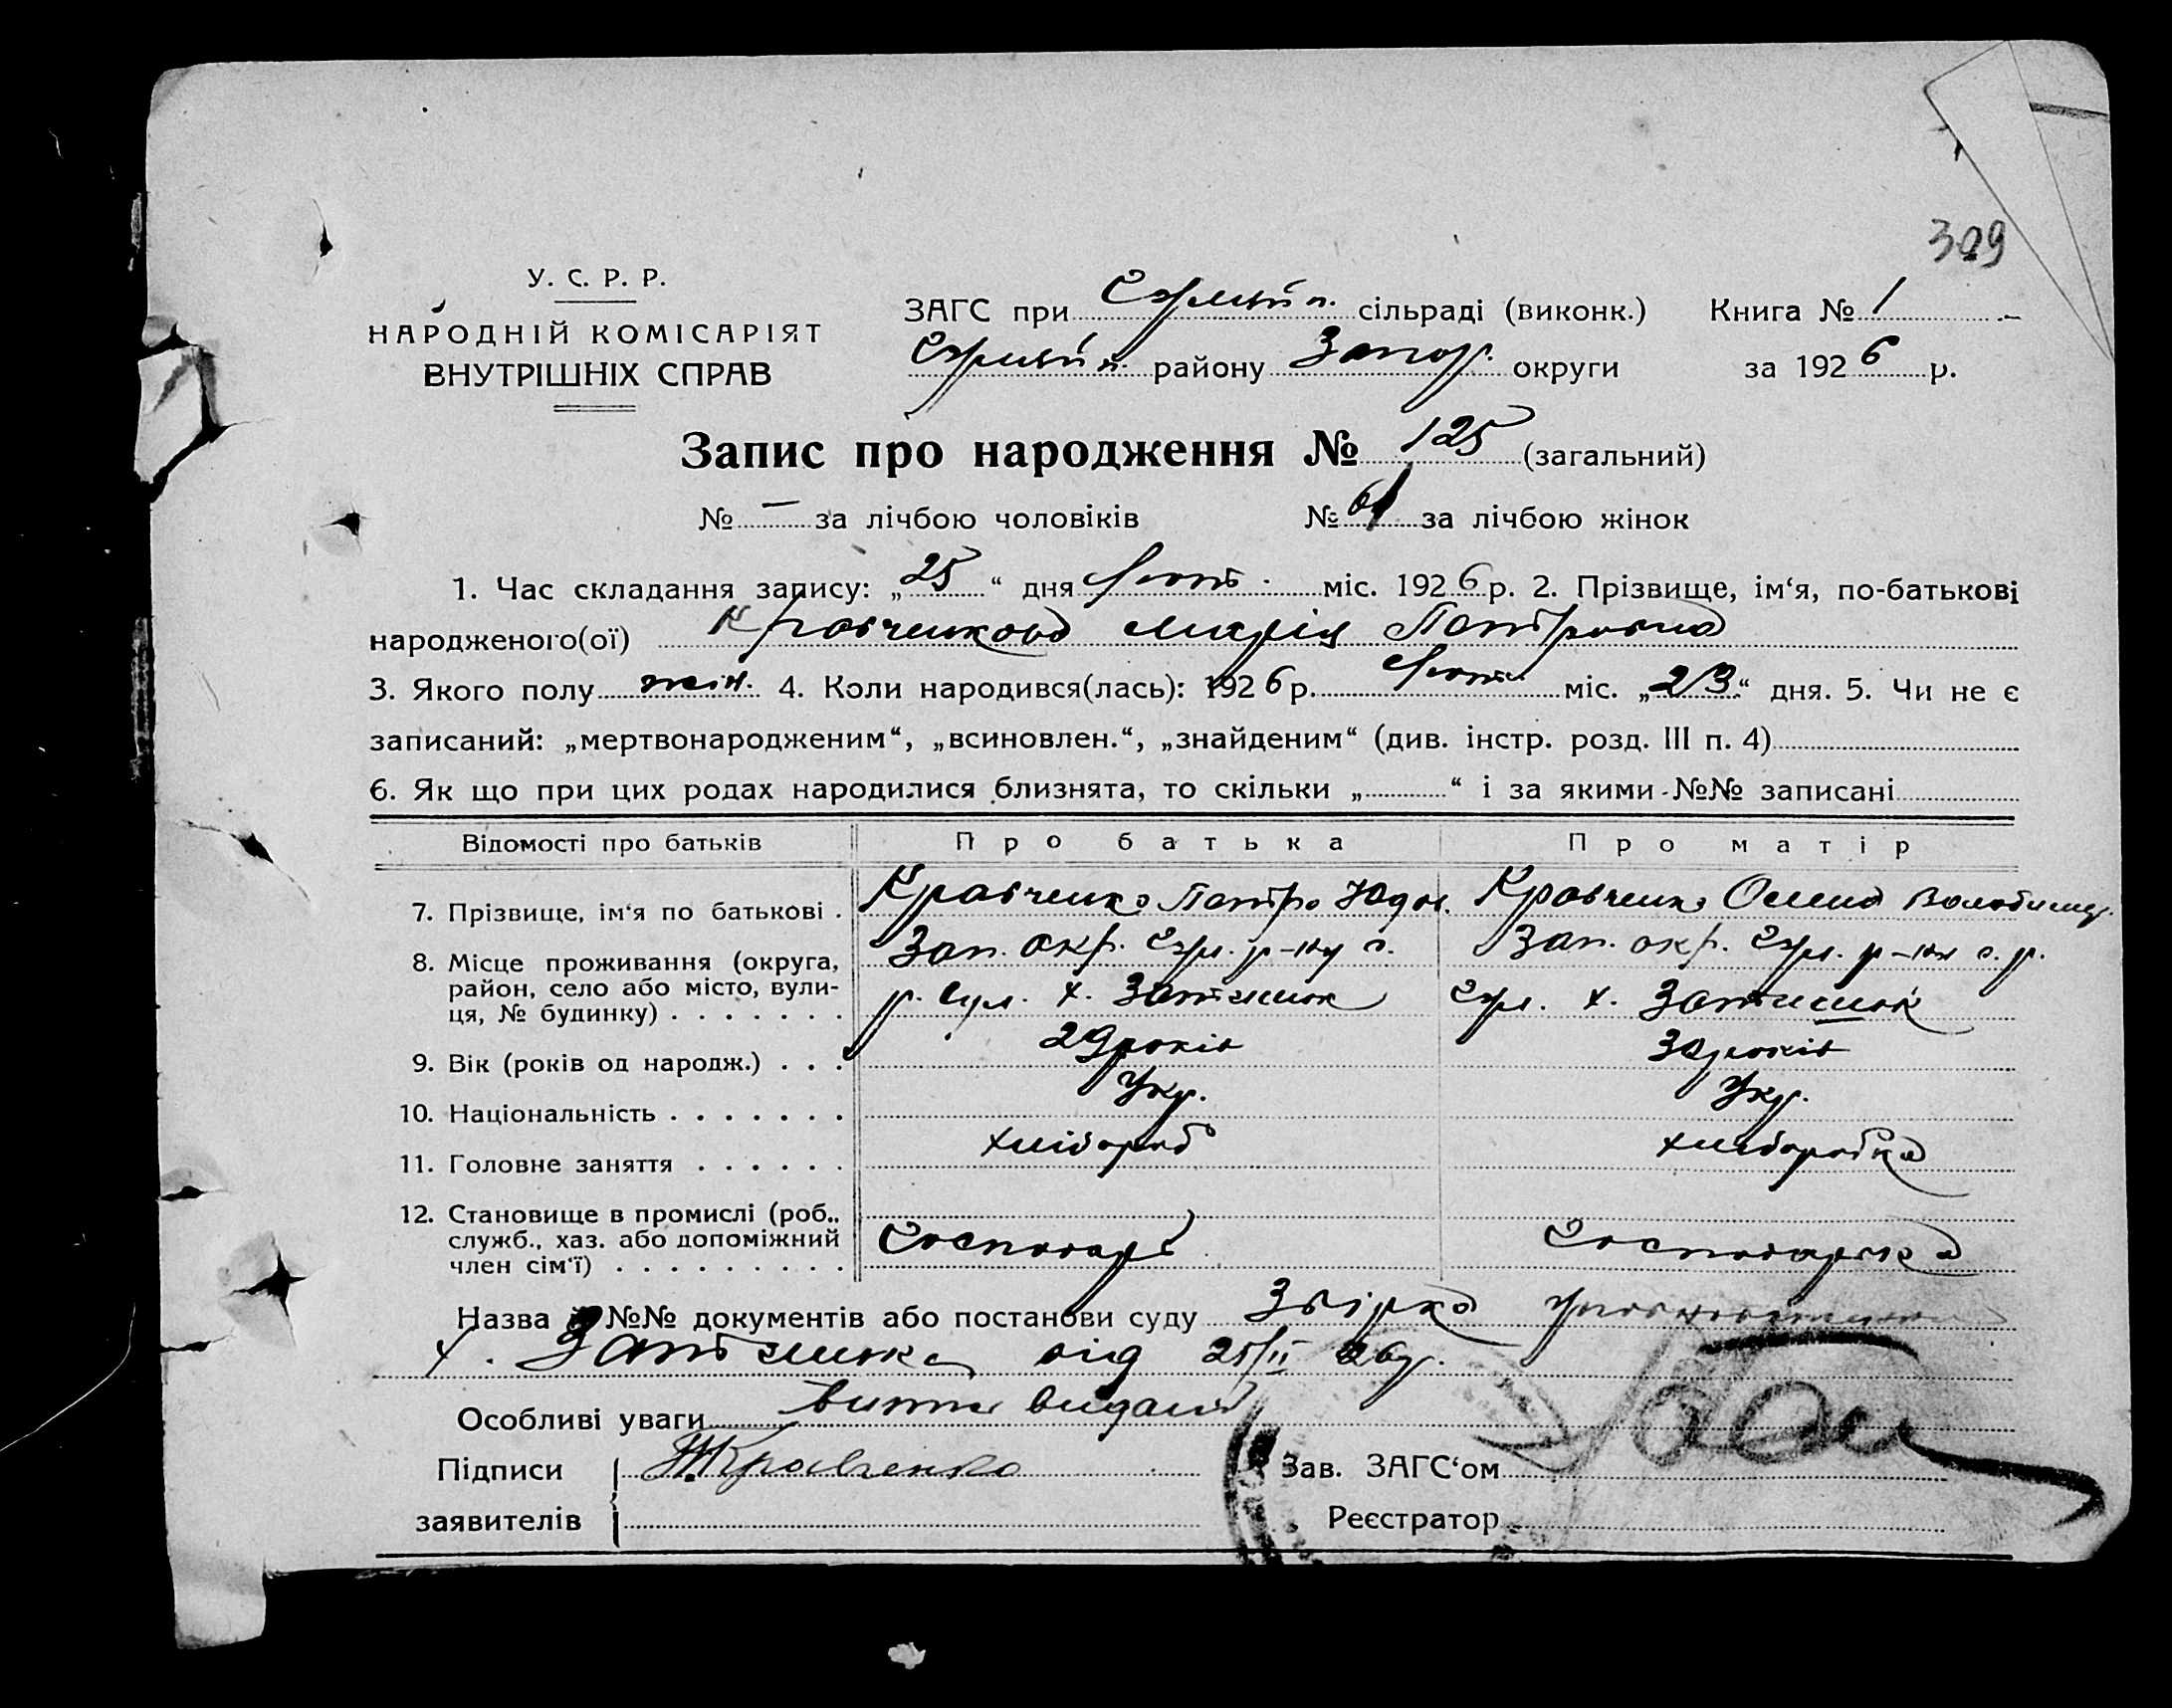 309
У. С. Р. Р.
НАРОДНІЙ КОМІСАРІЯТ
ВНУТРІШНІХ СПРАВ
ЗАГС при сільраді (виконк.) Книга № 1
району Запор. округи за 1926 р.
Запис про народження № 125 (загальний)
№ — за лічбою чоловіків № 61 за лічбою жінок
1. Час складання запису: „25“ дня Лют. міс. 1926 р. 2. Прізвище, ім‘я, по-батькові
народженого(ої) Кравченкова Марія Петровна
3. Якого полу жін. 4. Коли народився(лась): 1926 р. Лют. міс. „23“ дня. 5. Чи не є
записаний: „мертвонародженим“, „всиновлен.“, „знайденим“ (див. інстр. розд. III п. 4)
6. Як що при цих родах народилися близнята, то скільки „ “ і за якими №№ записані
Відомості про батьків Про батька Про матір
7. Прізвище, ім‘я по батькові . Кравченко Петро Кравченко Володимир.
8. Місце проживання (округа, Зап. окр. р-ну с. Зап. окр. р-ну с. р.
район, село або місто, вули- р. х. Затишок х. Затишок
ця, № будинку) . . . . . . .
9. Вік (років од народж.) . . . 29 років 30 років
10. Національність . . . . . . . Укр. Укр.
11. Головне заняття . . . . . . хлібороб хліборобка
12. Становище в промислі (роб.,
служб., хаз. або допоміжний Господарь Господарка
член сім‘ї) . . . . . . . . .
Назва й №№ документів або постанови суду Звірка
х. Затишка від 25/II 26 р.
Особливі уваги видана
Підписи Кравченко Зав. ЗАГС‘ом
заявителів Реєстратор